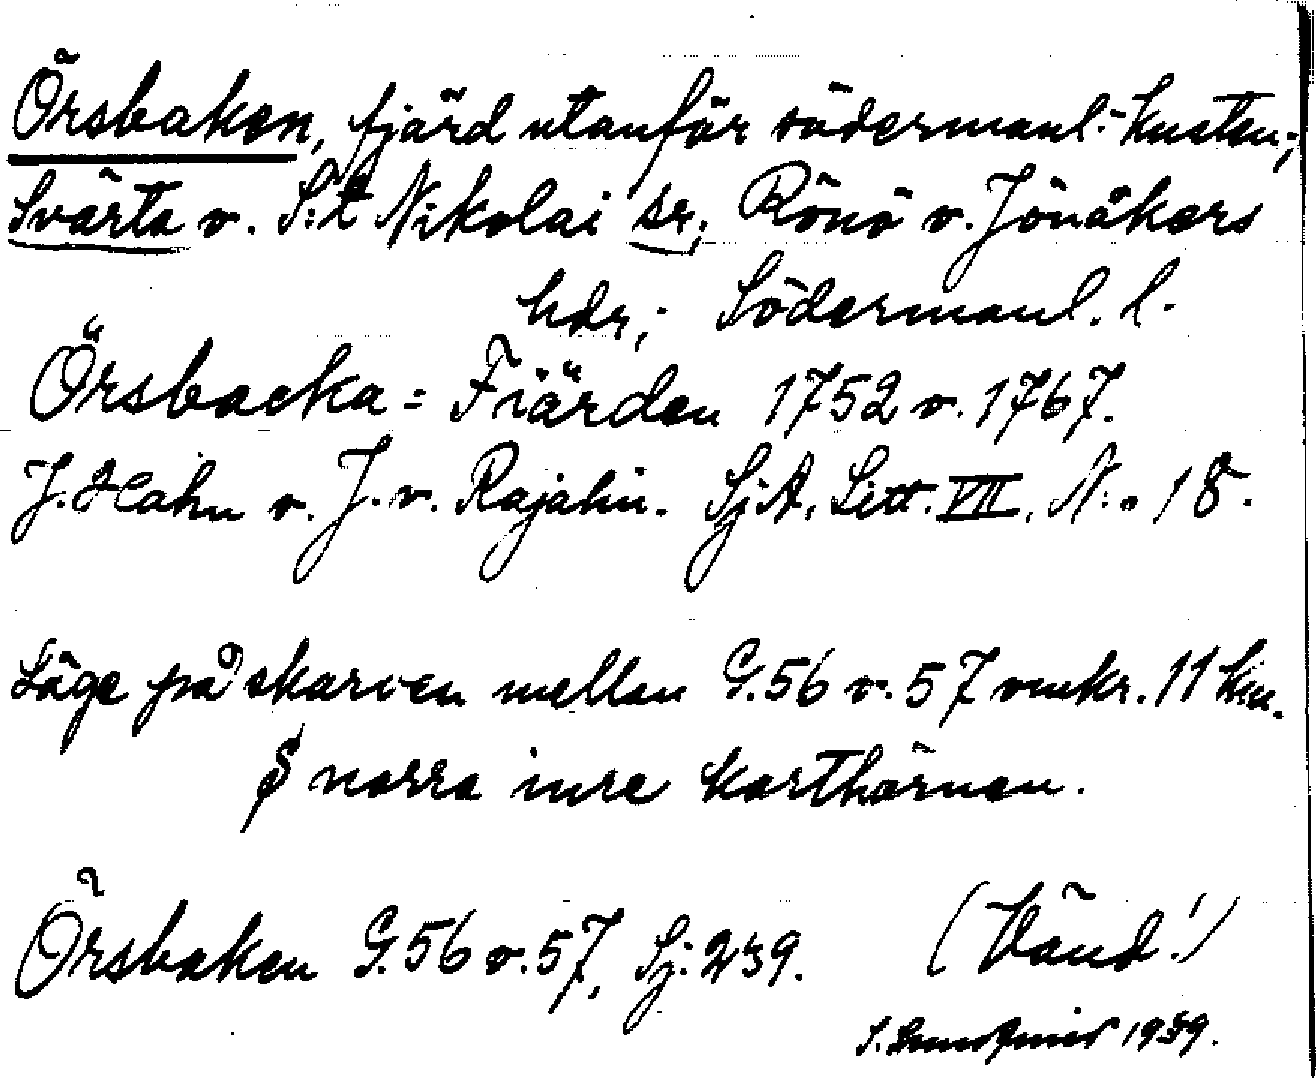 Örsbaken, fjärd utanför södermanl.-kusten;
Svärta o. S:t Nikolai sr, Rönö o. Jönåkers
hdr; Södermanl. l.
Örsbacka=Fiärden 1752 o. 1767.
J. Hahn o. J. v. Rajalin. SjA, Litt. VII, N:o 18.
Läge på skarven mellan G.56 o. 57 omkr. 11 km.
S norra inre karthörnen.
Örsbaken G.56 o. 57, Sj. 239.
(Vänd!)
1939.